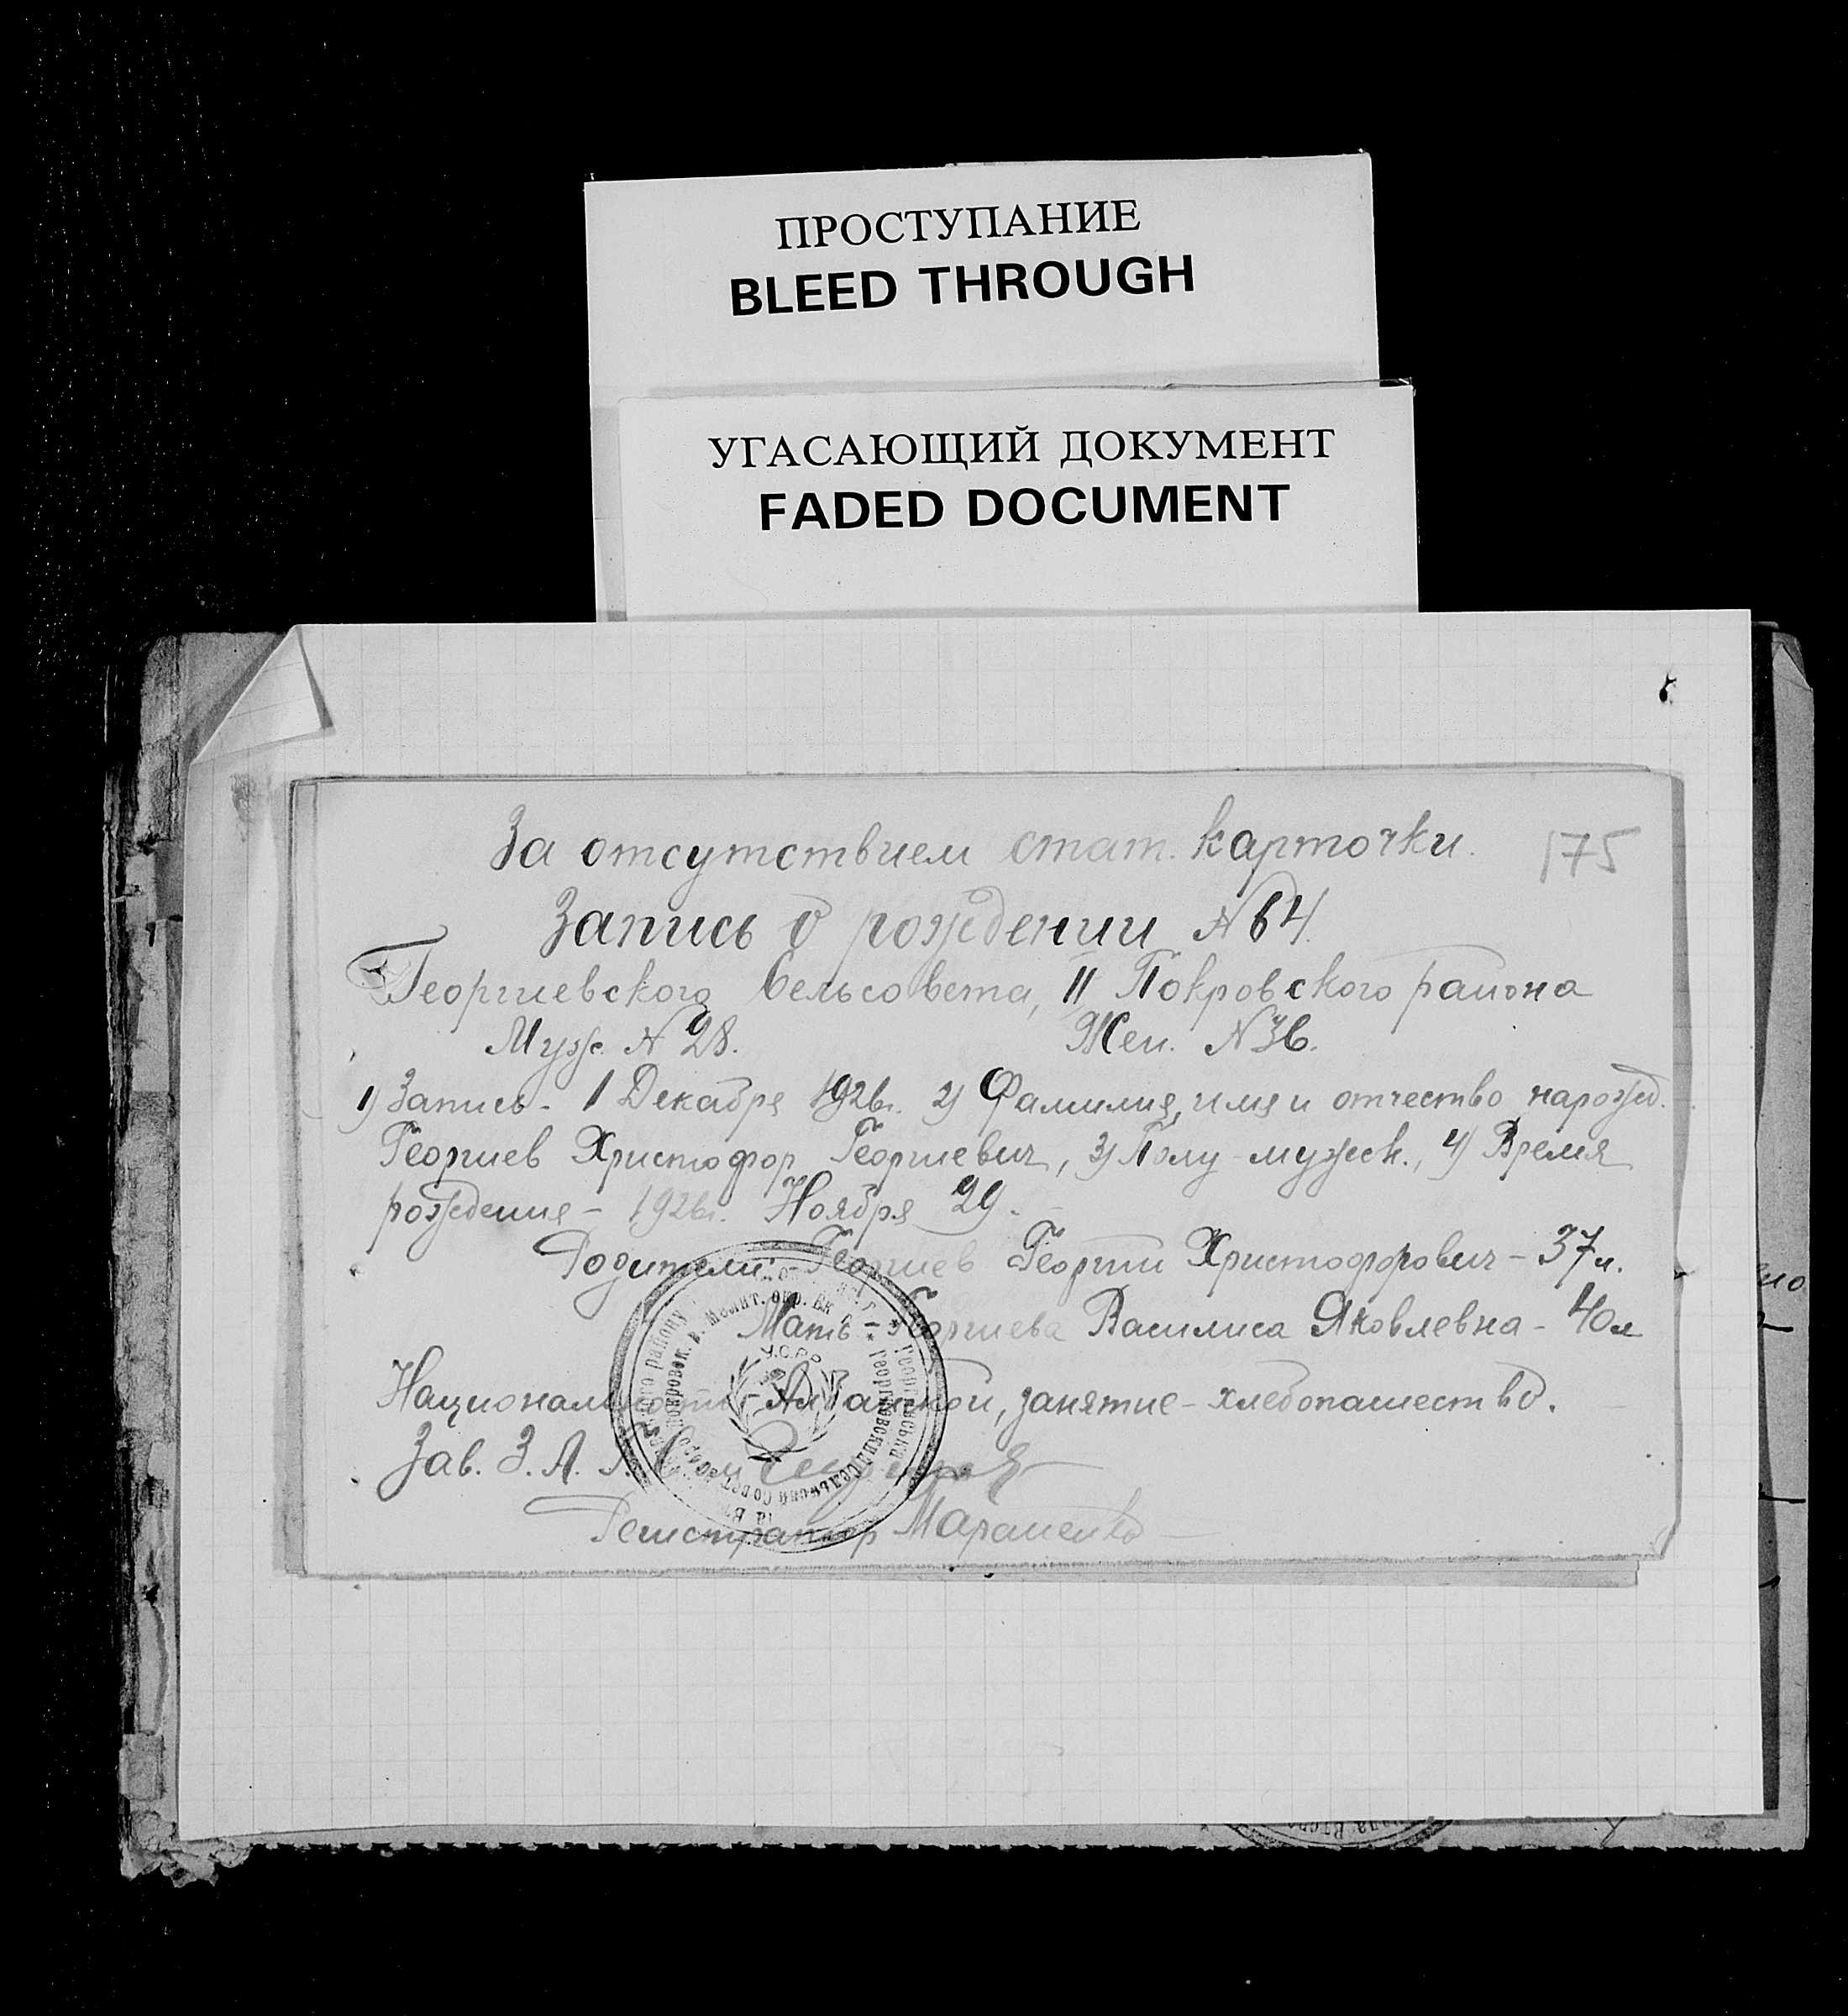 ПРОСТУПАНИЕ
BLEED THROUGH
УГАСАЮЩИЙ ДОКУМЕНТ
FADED DOCUMENT
За отсутствием стат. карточки.
175
Запись о рождении №64.
Георгиевского Сельсовета, II Покровского района
Муж. № 28. Жен. №36.
1) Запись - 1 Декабря 1926г. 2) Фамилия, имя и отчество нарожд.
Георгиев Христофор Георгиевич, 3) Полу - мужск., 4) Время
рождения - 1926г. Ноября 29.
Родители: Георгиев Георгий Христофорович - 37 л.
Мать - Георгиева Василиса Яковлевна - 40 л
Национальность - Албанской, занятие - хлебопашество.
Зав. З. А. Г. С.
Регистратор
У.С.Р.Р.